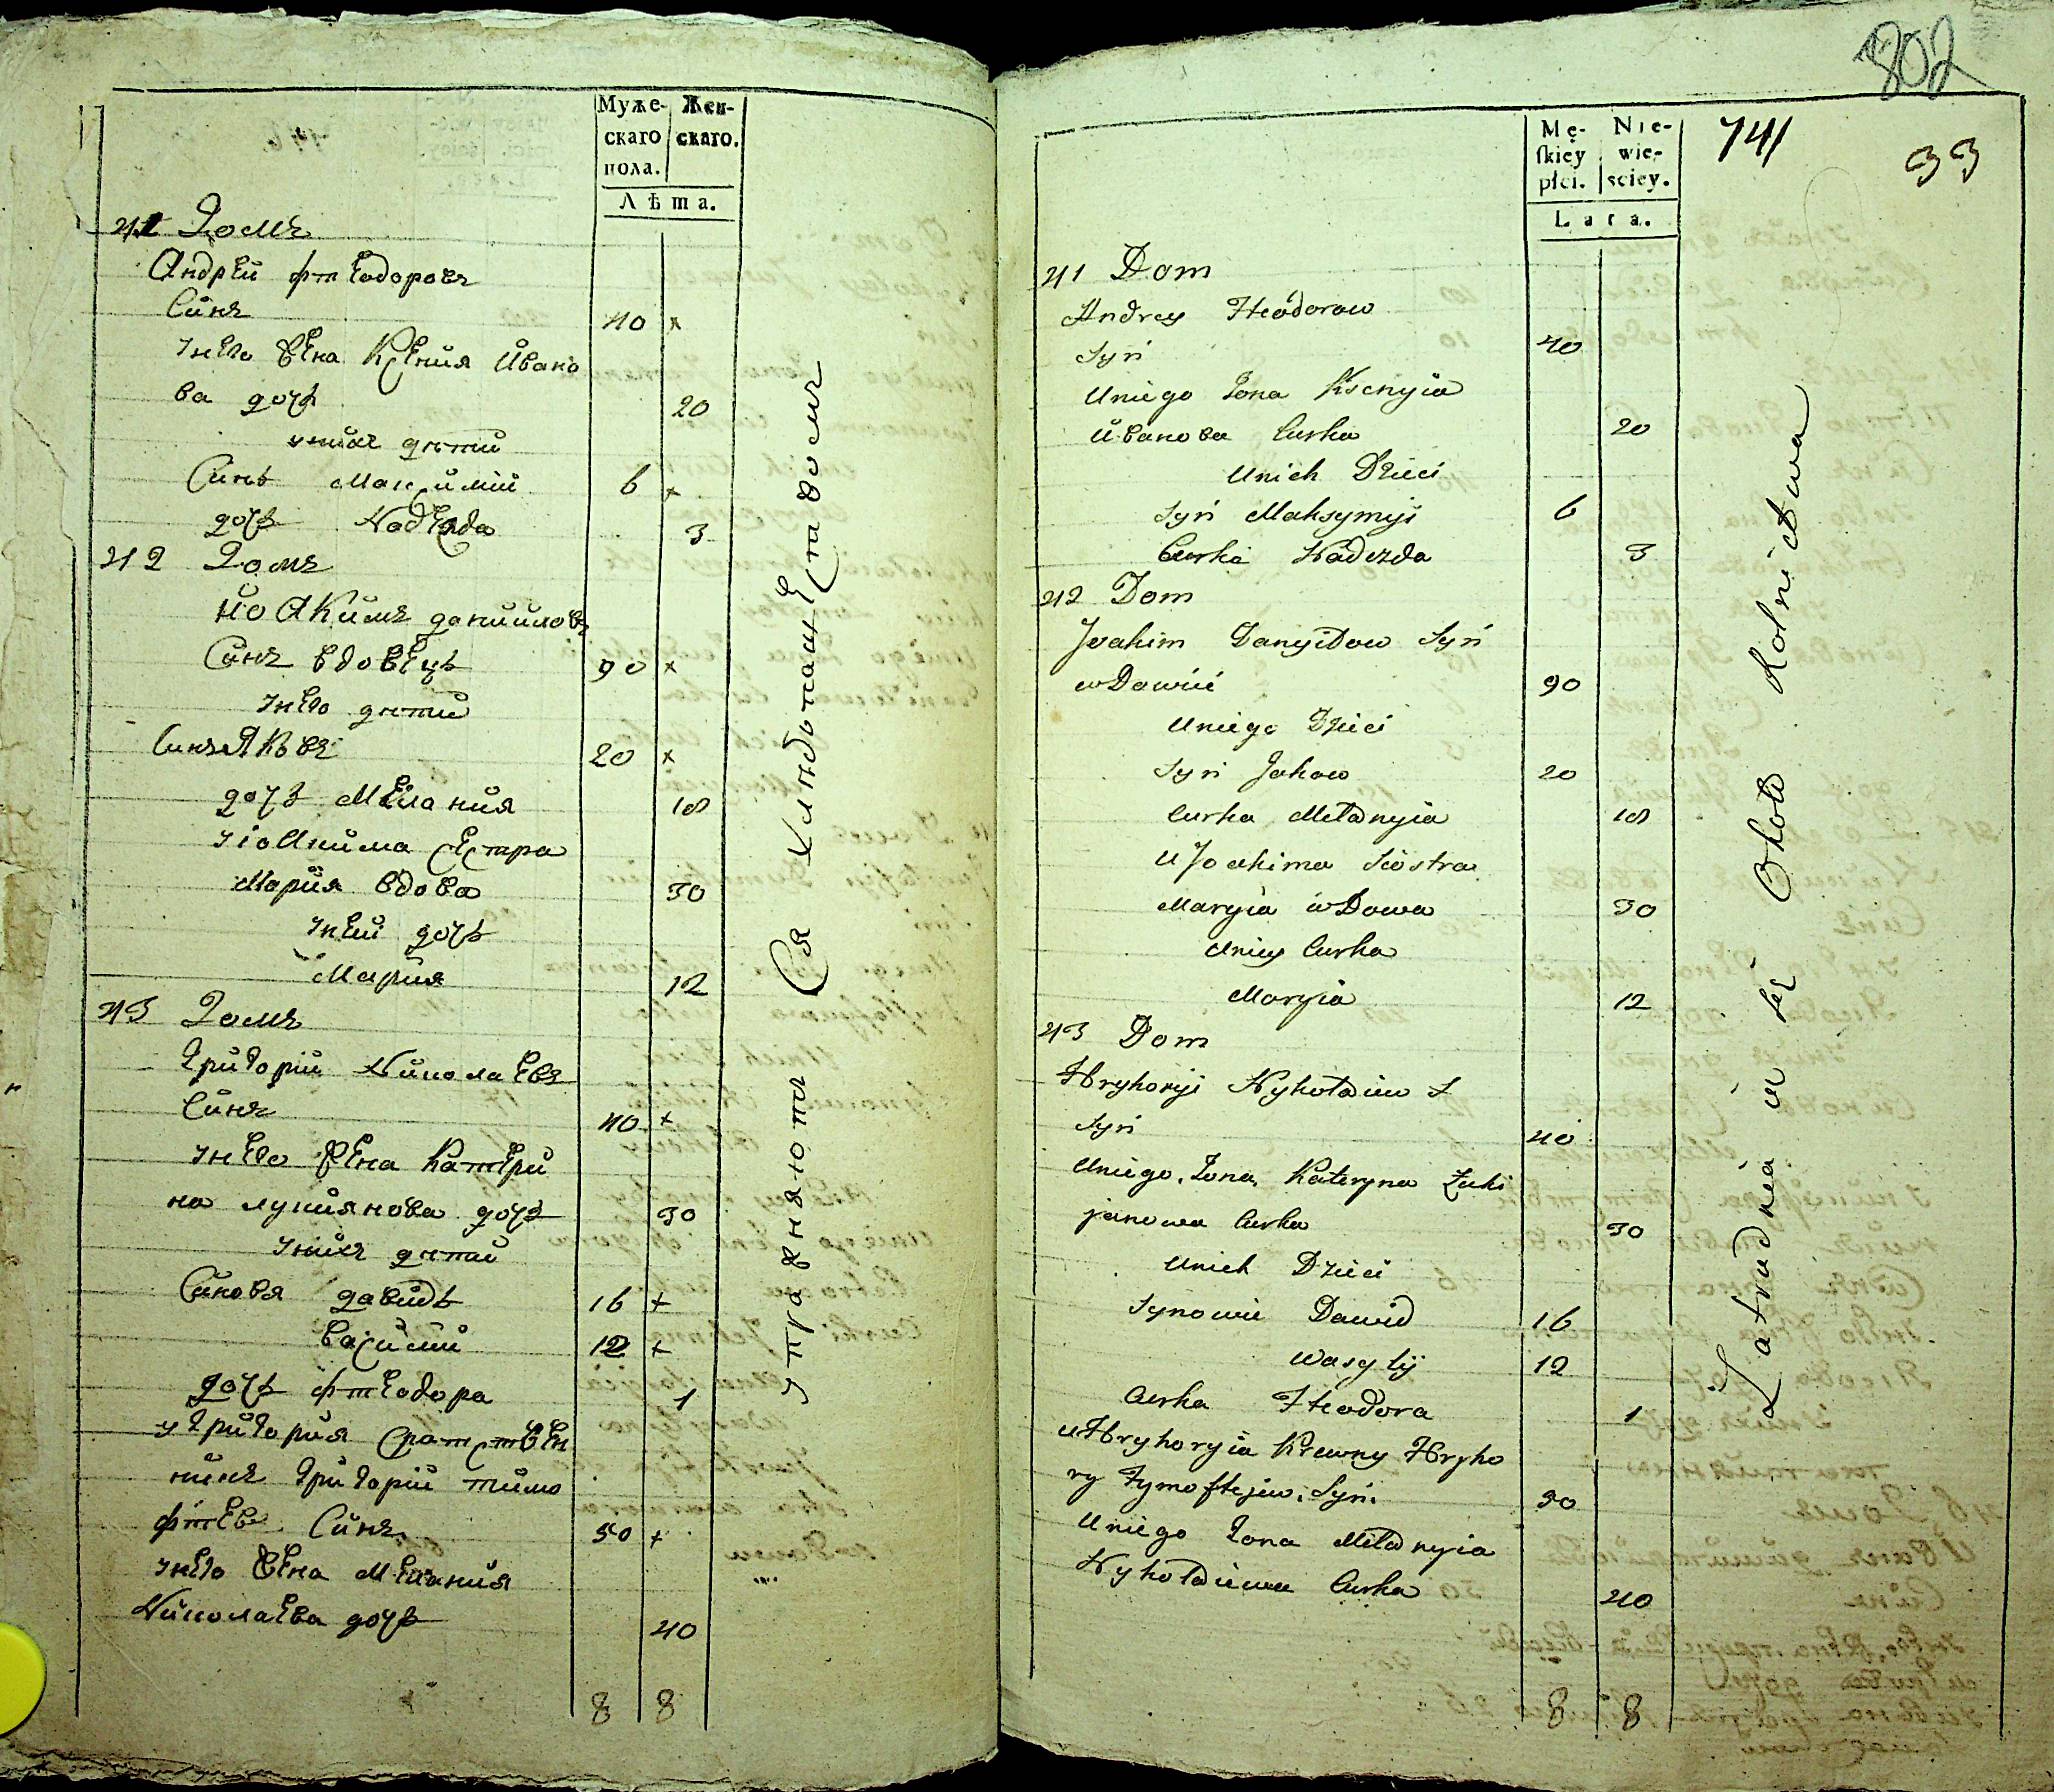 Муже-
скаго
пола.
Жен-
скаго.
Лѣта.
41 Домъ
Андрей фтеодоровъ
Синъ 40 x
унего жена Ксения Ивано
ва дочь 20
уних дѣти
Синъ Максимій 6 x
дочь Надежда 3
42 Домъ
Йоакимъ даниилов
Синъ вдовецъ 90 x
унего дѣти
Синъ Яковъ 20 x
дочь Мелания 18
уіоакима сестра
Мария вдова 30
уней дочь
Мария 12
43 Домъ
Григорій Николаевъ
Синъ 40 x
унего жена Катери
на лукиянова дочь 30
уних дѣти
Синовя давидъ 16 x
василий 12 x
дочь фтеодора 1
у Григория сротствен
никъ Григорій тимо
фтеев Синъ 50 x
унего жена Мелания
Николаева дочь 40
8 8
упражняются хлѣбопашеством
802
741
33
Mę-
ſkiey
płci.
Nie-
wie-
sciey.
Lata.
41 Dom
Andrey Theodorow
Syn 40
Uniego Zona Ksenyia
Иванова Curka 20
Unich Dzieci
Syn Maksymyi 6
Curka Nadezda 3
42 Dom
Joakim Danyiłow Syn
wDowiec 90
Uniego Dzieci
Syn Jakow 20
Curka Mełanyia 18
U Joakima Siostra
Maryia wDowa 30
Uniey Curka
Maryia 12
43 Dom
Hryhoryi Nykołaiew S
Syn 40
Uniego Zona Kateryna Łuki
janowa Curka 30
Unich Dzieci
Synowie Dawid 16
Wasylij 12
Curka Theodora 1
uHryhoryia Krewny Hryho
ry Tymoftejew Syn 50
Uniego Zona Mełanyia
Nykołaiewa Curka 40
8 8
Zatrudnia się Około Rolnictwa